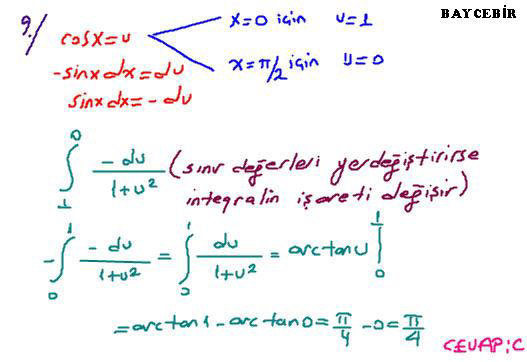 BAYCEBİR
9./
cosx=u
x=0 için u=1
x=π/2 için u=0
-sinxdx=du
sinxdx=-du
∫₁⁰ -du/(1+u²) (sınır değerleri yerdeğiştirirse
integralin işareti değişir)
-∫₀¹ -du/(1+u²) = ∫₀¹ du/(1+u²) = arctanu |₀¹
=arctan1-arctan0=π/4-0=π/4
CEVAP:C